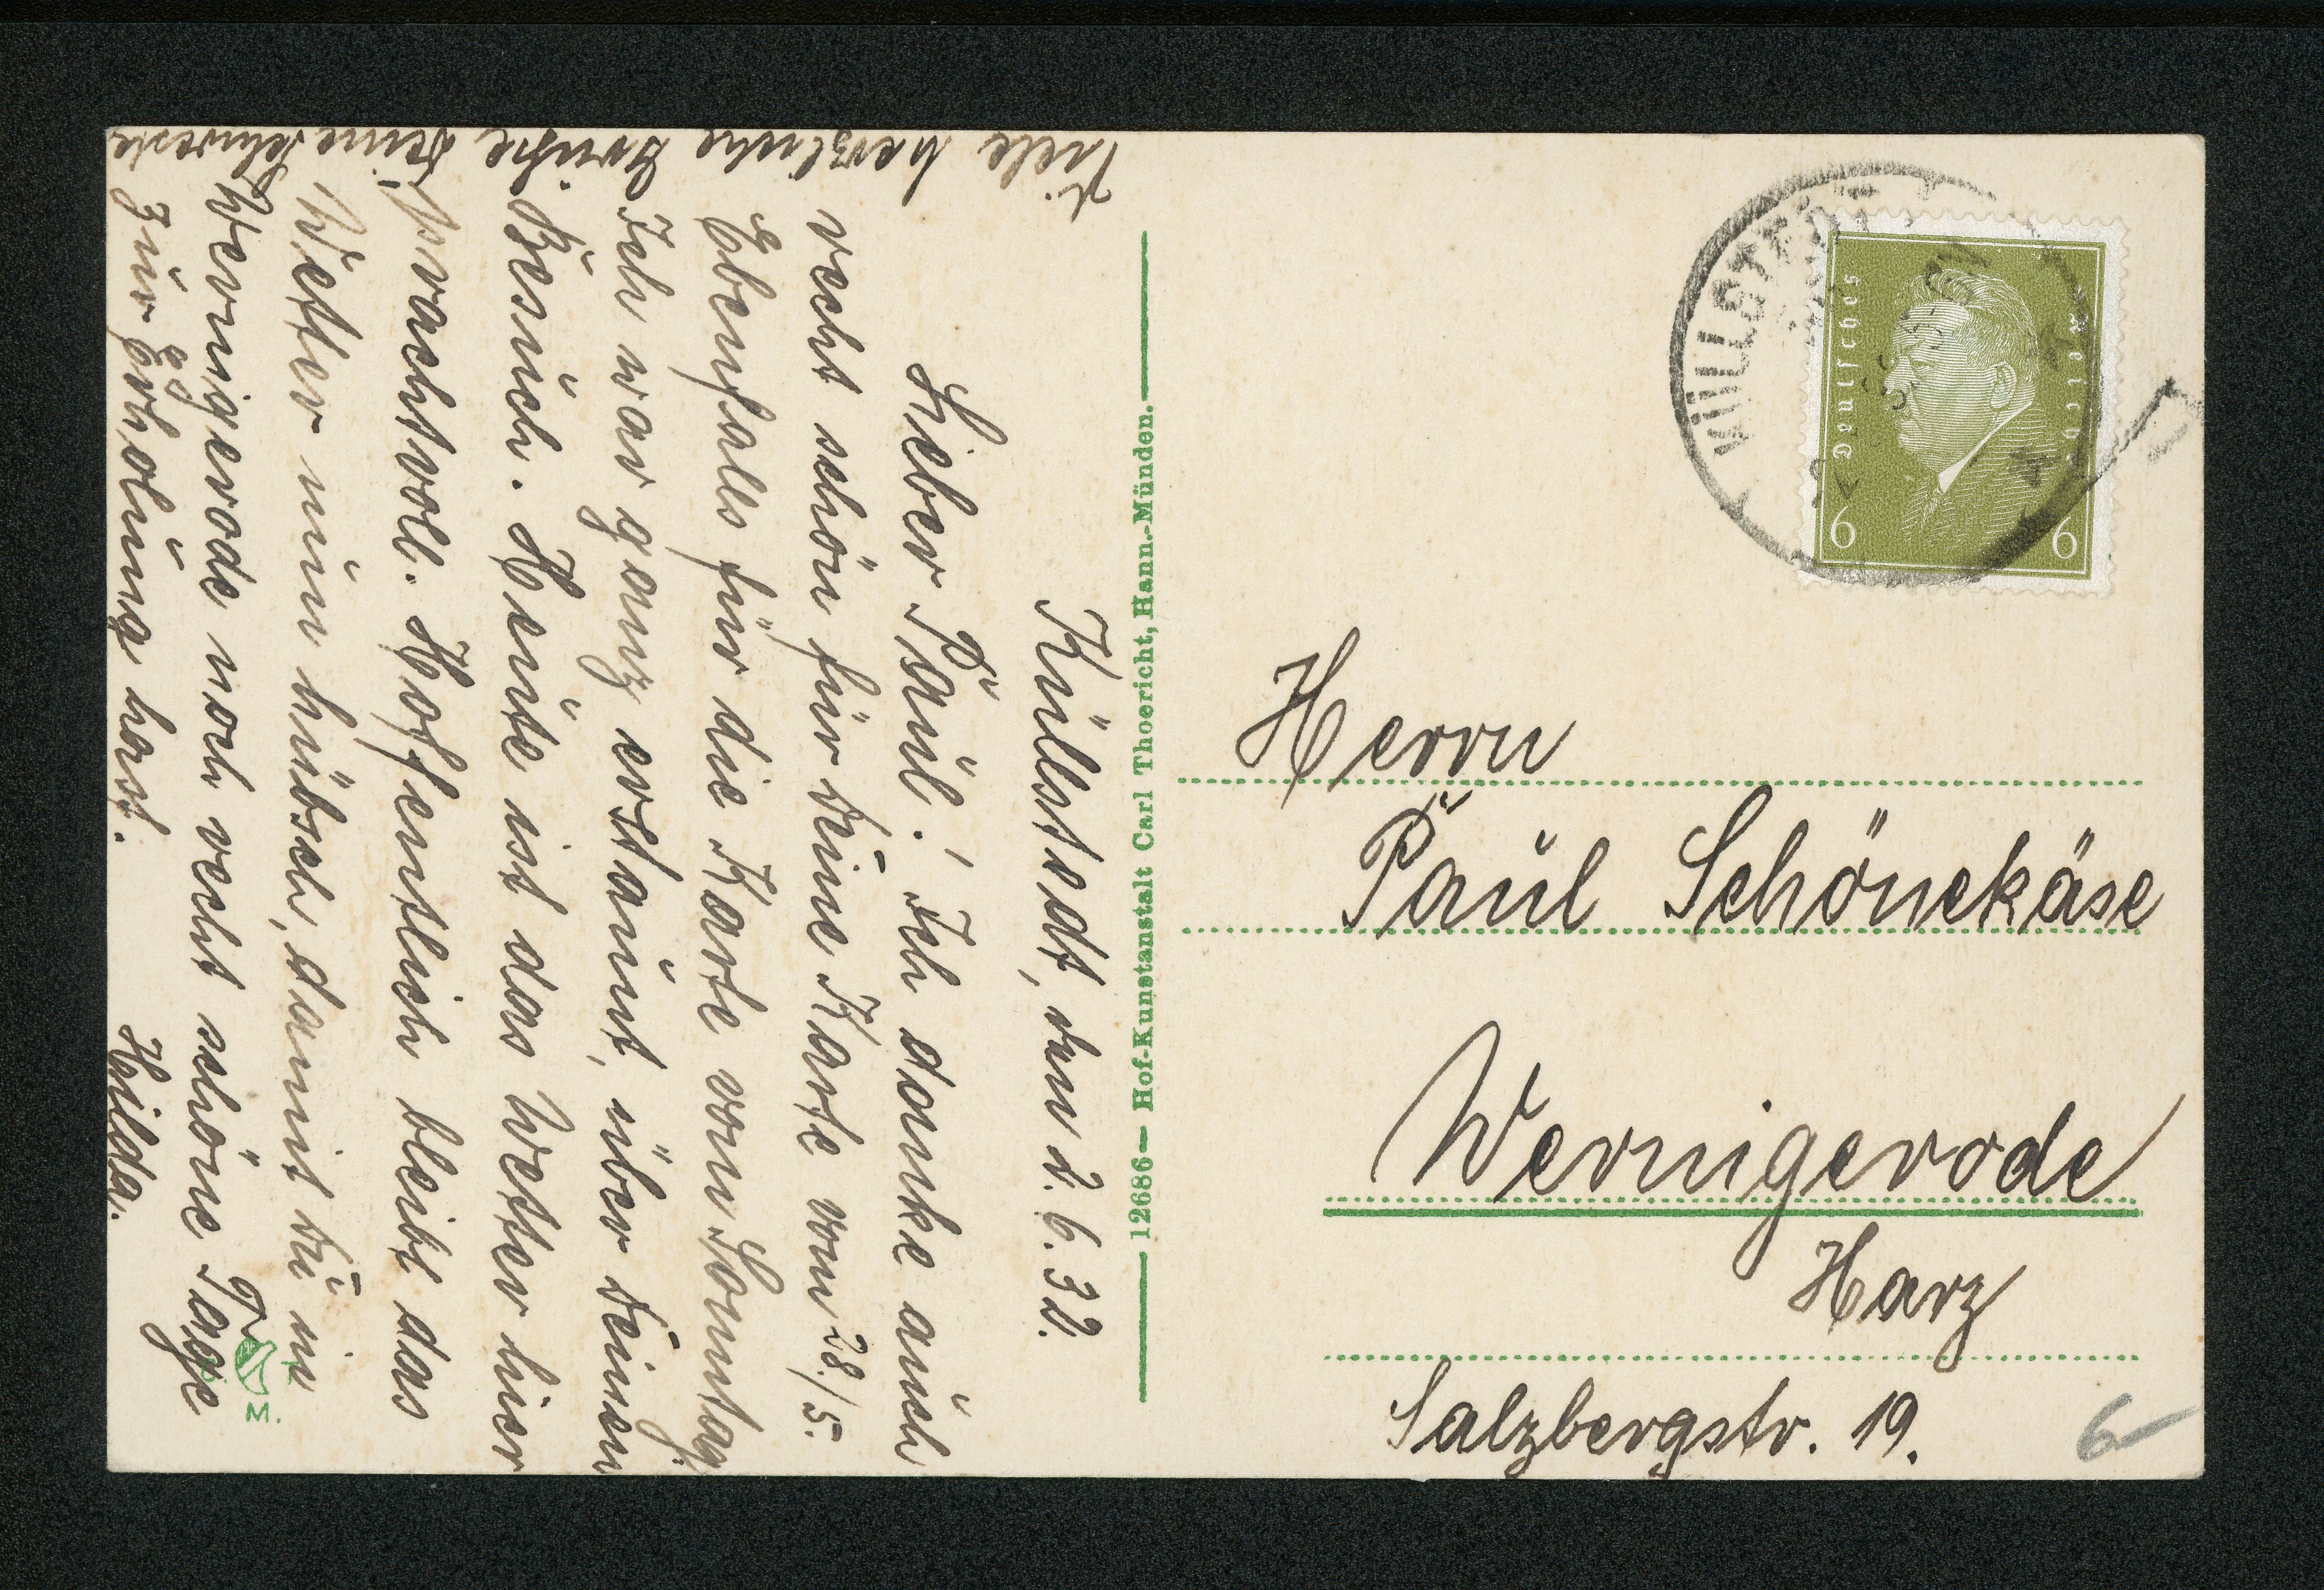 Küllstedt, den 2. 6. 32.
Lieber Paul! Ich danke auch
recht schön für Deine Karte vom 28./5.
Ebenfalls für die Karte vom Sonntag.
Ich war ganz erstaunt, über Deinen
Besuch. Heute ist das Wetter hier
prachtvoll. Hoffentlich bleibt das
Wetter nun hübsch, damit Du in
Wernigerode noch recht schöne Tage
zur Erholung hast.
Viele herzliche Grüße Deine Schwester
Hilda.
12686 — Hof-Kunstanstalt Carl Thoericht, Hann.-Münden.
M.
KÜLLSTEDT
Deutsches Reich
6 6
Herrn
Paul Schönekäse
Wernigerode
Harz
Salzbergstr. 19.
6